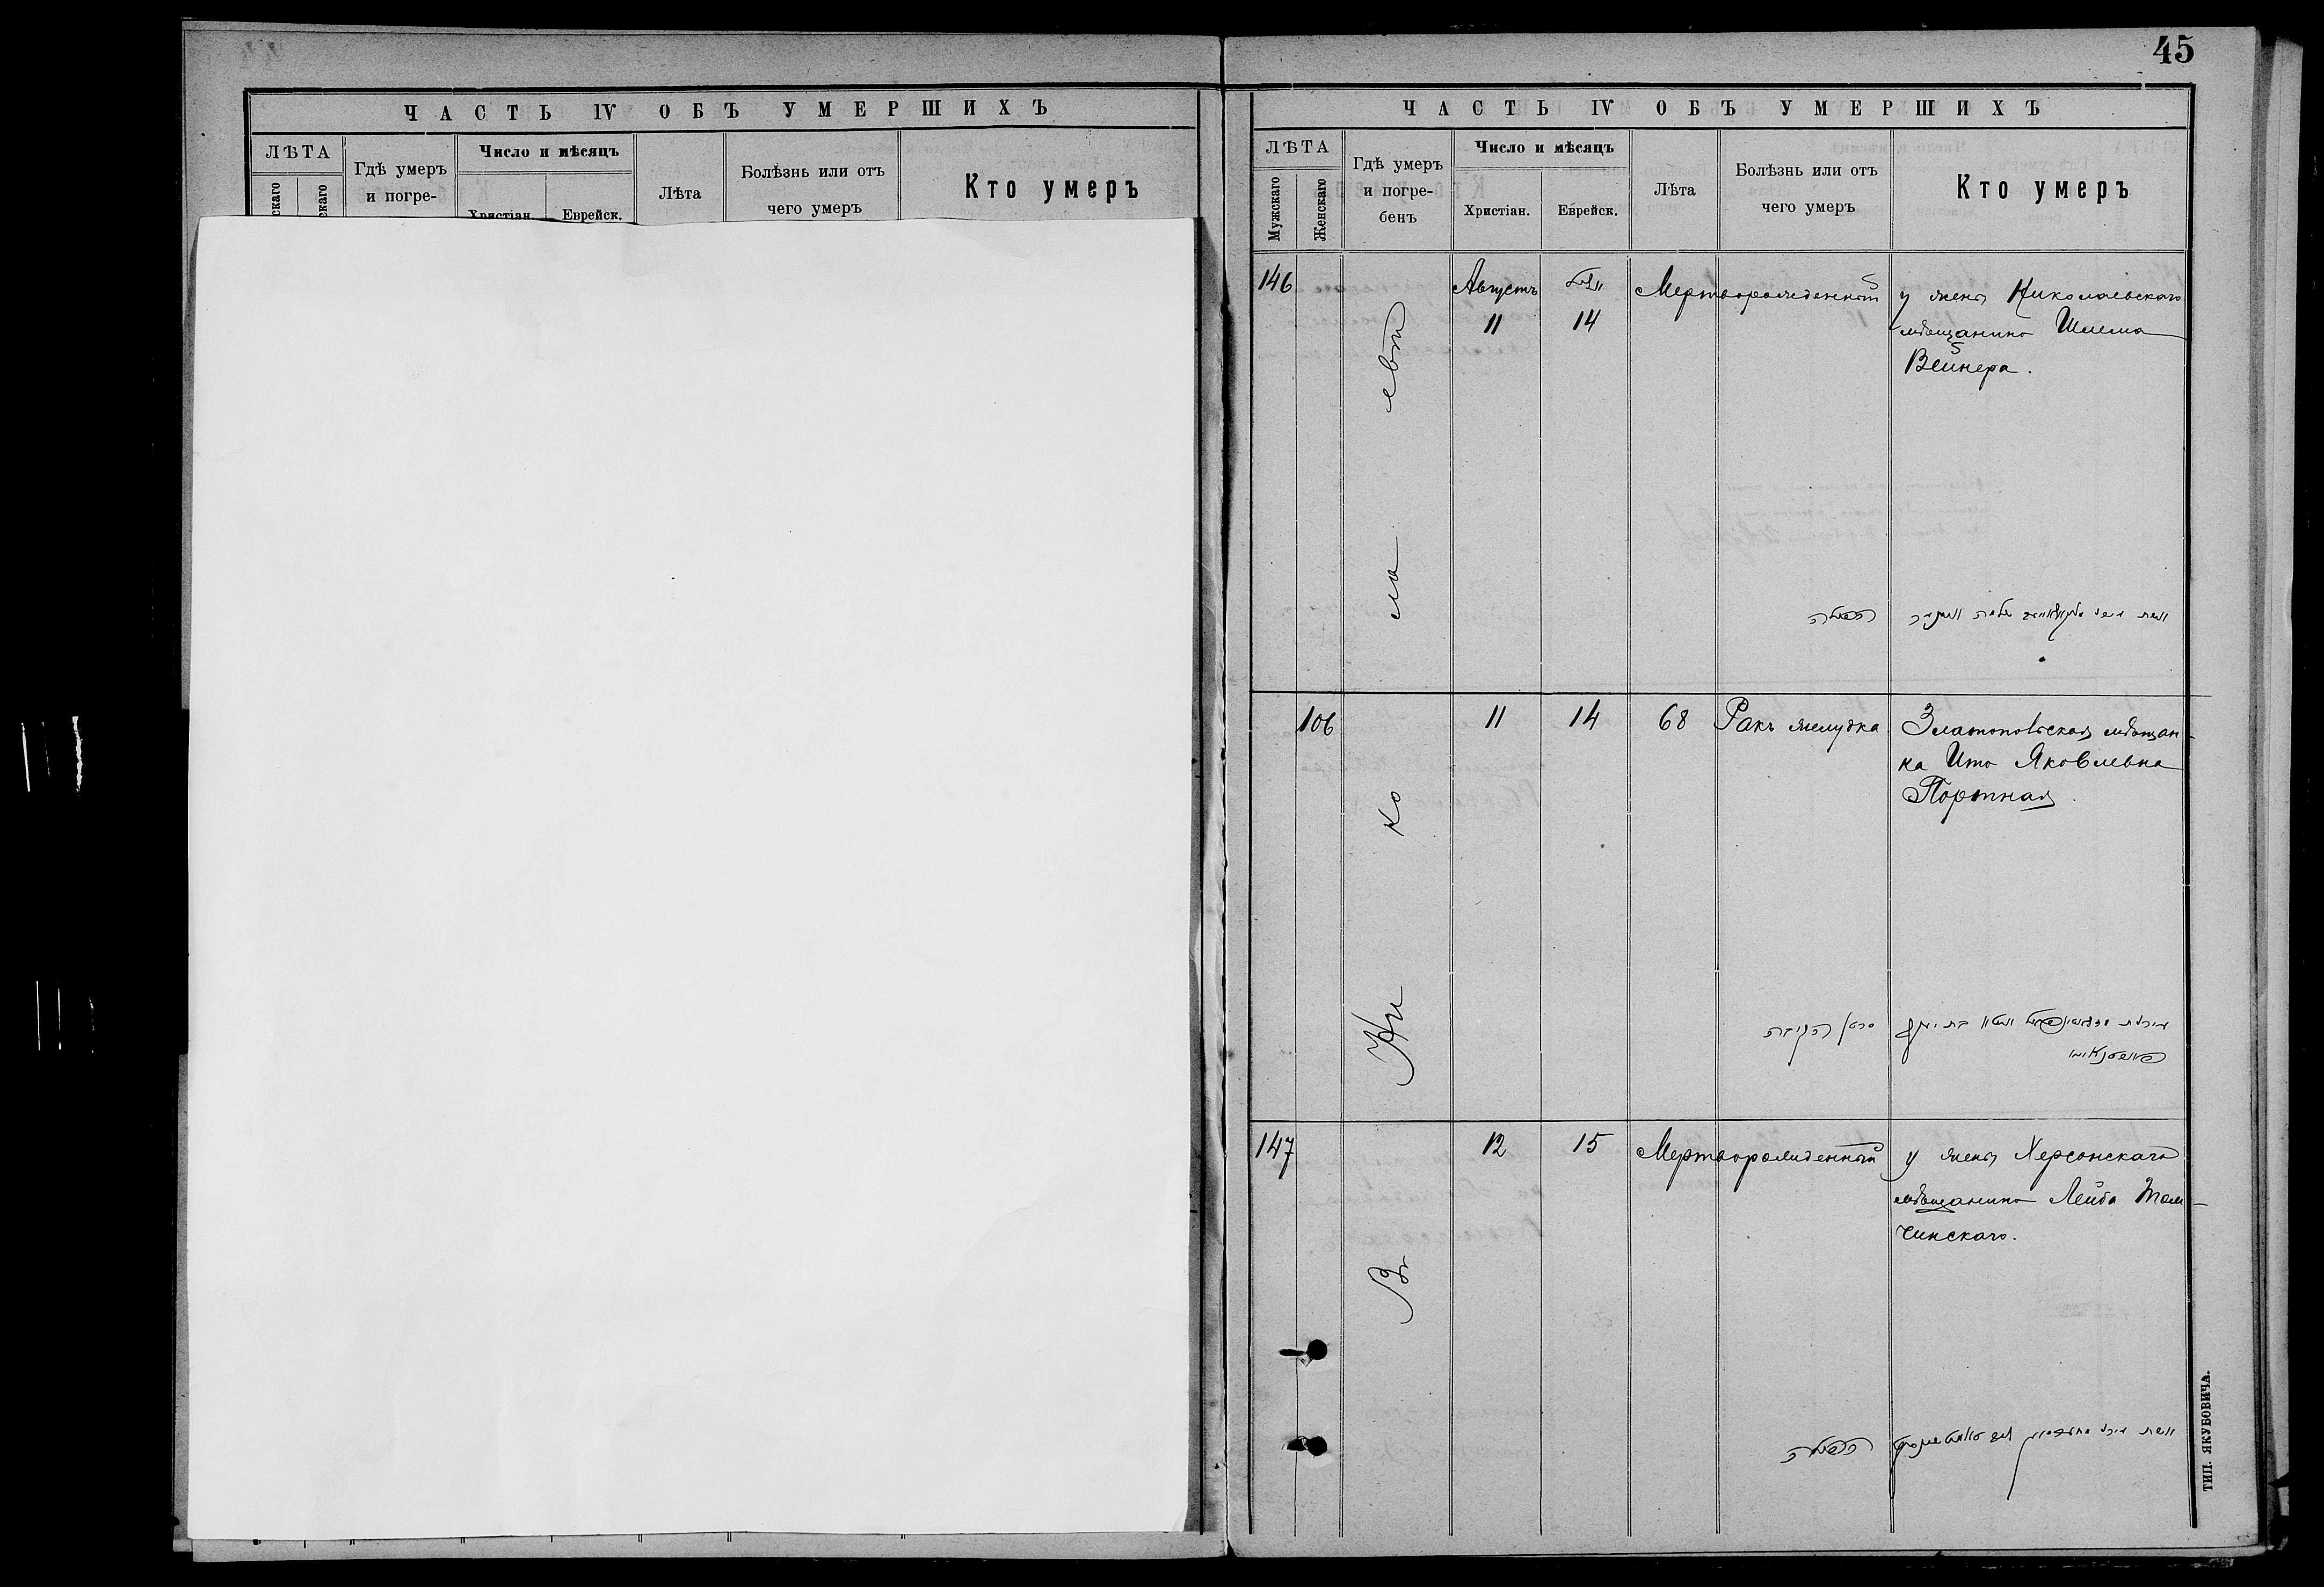 45
ЧАСТЬ IV ОБЪ УМЕРШИХЪ
ЛѢТА
скаго
скаго
Гдѣ умеръ
и погре-
Число и мѣсяцъ
Христіан.
Еврейск.
Лѣта
Болѣзнь или отъ
чего умеръ
Кто умеръ
ЧАСТЬ IV ОБЪ УМЕРШИХЪ
ЛѢТА
Мужскаго
Женскаго
Гдѣ умеръ
и погре-
бенъ
Число и мѣсяцъ
Христіан.
Еврейск.
Лѣта
Болѣзнь или отъ
чего умеръ
Кто умеръ
Въ Николаевѣ
146
Августъ
11
14
Мертворожденный
у жены Николаевскаго
мѣщанина Шлема
Вейнера.
106
11
14
68
Ракъ желудка
Златопольская мѣщан-
ка Ита Яковлевна
Портная.
147
12
15
Мертворожденный
у жены Херсонскаго
мѣщанина Лейба Там-
чинскаго.
ТИП. ЯКУБОВИЧА.